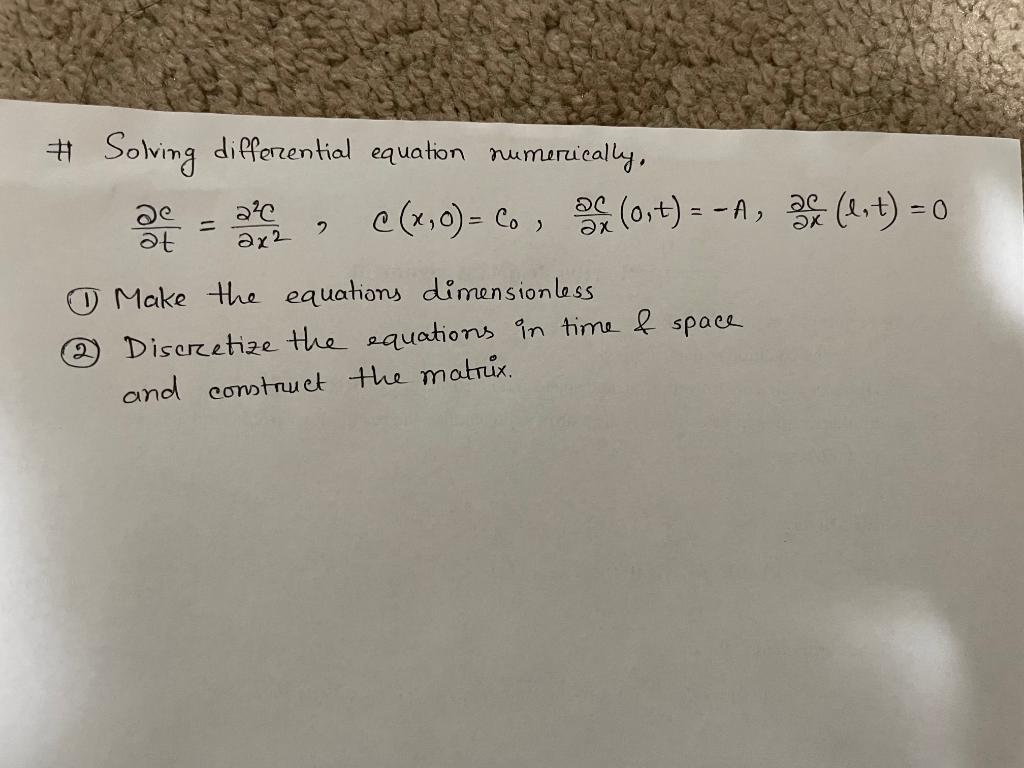 # Solving differential equation numerically.
∂c/∂t = ∂²c/∂x² , c(x,0) = C₀ , ∂c/∂x (0,t) = -A, ∂c/∂x (l,t) = 0
① Make the equations dimensionless
② Discretize the equations in time & space
and construct the matrix.